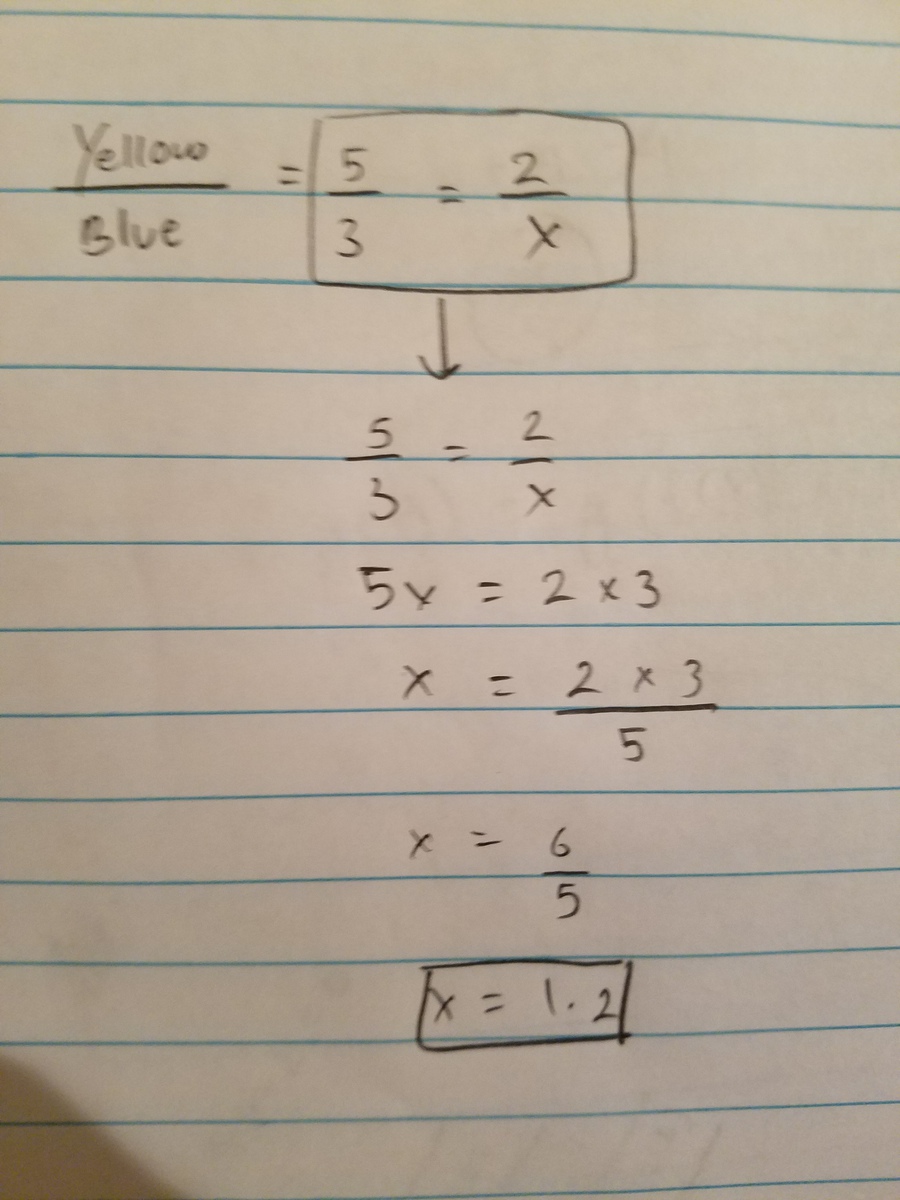 Yellow/Blue = 5/3 = 2/x
5/3 = 2/x
5x = 2 x 3
x = 2 x 3/5
x = 6/5
x = 1.2